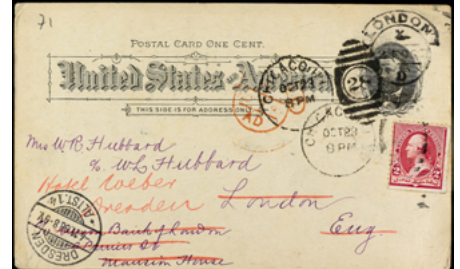 71
POSTAL CARD ONE CENT.
United States of America
THIS SIDE IS FOR ADDRESS ONLY
LONDON
CHICAGO
OCT 23
6 PM
28
AD
CHICAGO
OCT 23
6 PM
Mrs W.R. Hubbard
c/o W.L. Hubbard
Hotel Weber
Dresden
London
Eng.
Bank of London
Princes St
Mansion House
DRESDEN
ALTST. 14
2
2